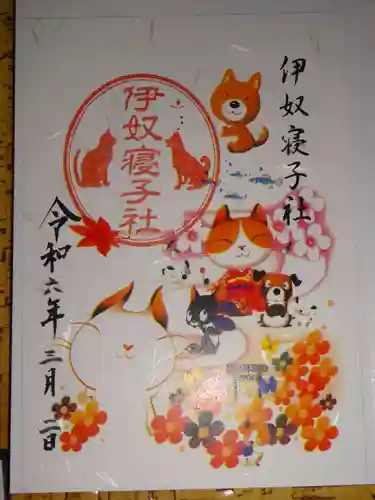 伊奴寝子社
伊奴寝子社
令和六年三月二日